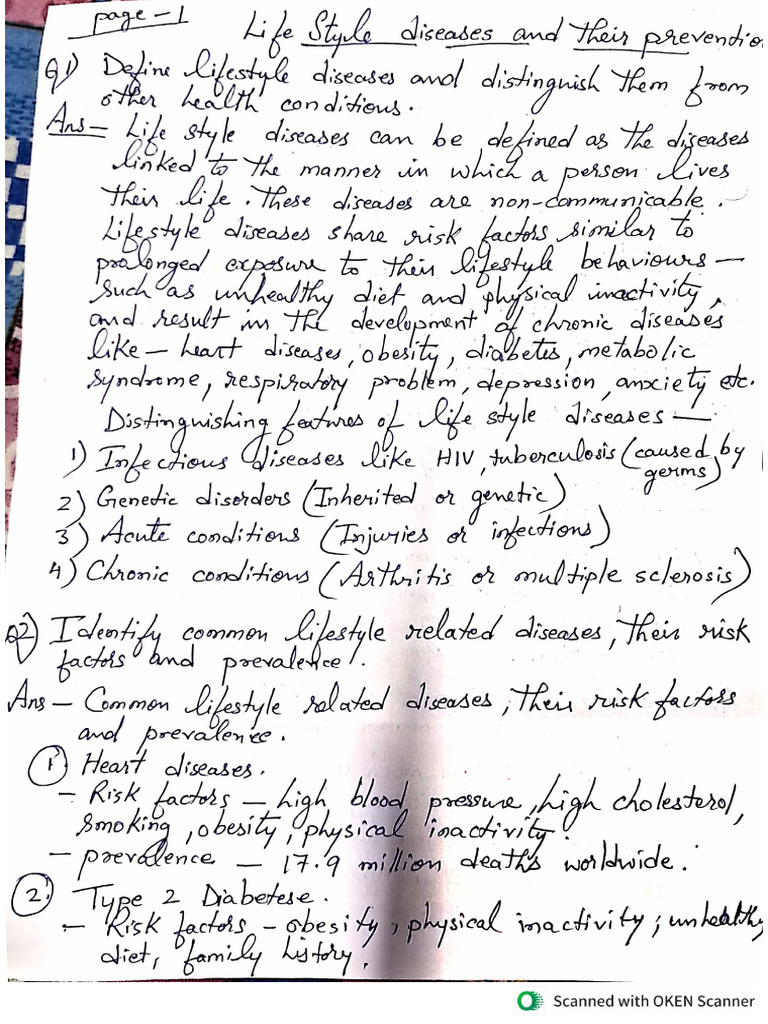 page-1
Life Style diseases and their preventio
Q1) Define lifestyle diseases and distinguish them from
other health conditions.
Ans- Life style diseases can be defined as the diseases
linked to the manner in which a person lives
their life. These diseases are non-communicable.
Lifestyle diseases share risk factors similar to
prolonged exposure to their lifestyle behaviours -
such as unhealthy diet and physical inactivity,
and result in the development of chronic diseases
like - heart diseases, obesity, diabetes, metabolic
syndrome, respiratory problem, depression, anxiety etc.
Distinguishing features of life style diseases -
1) Infectious diseases like HIV, tuberculosis (caused by
germs)
2) Genetic disorders (Inherited or genetic)
3) Acute conditions (Injuries or infections)
4) Chronic conditions (Arthritis or multiple sclerosis)
Q2) Identify common lifestyle related diseases, their risk
factors and prevalence.
Ans - Common lifestyle related diseases, their risk factors
and prevalence.
1) Heart diseases.
- Risk factors - high blood pressure, high cholesterol,
smoking, obesity, physical inactivity.
- prevalence - 17.9 million deaths worldwide.
2) Type 2 Diabetese.
- Risk factors - obesity, physical inactivity, unhealthy
diet, family history.
Scanned with OKEN Scanner